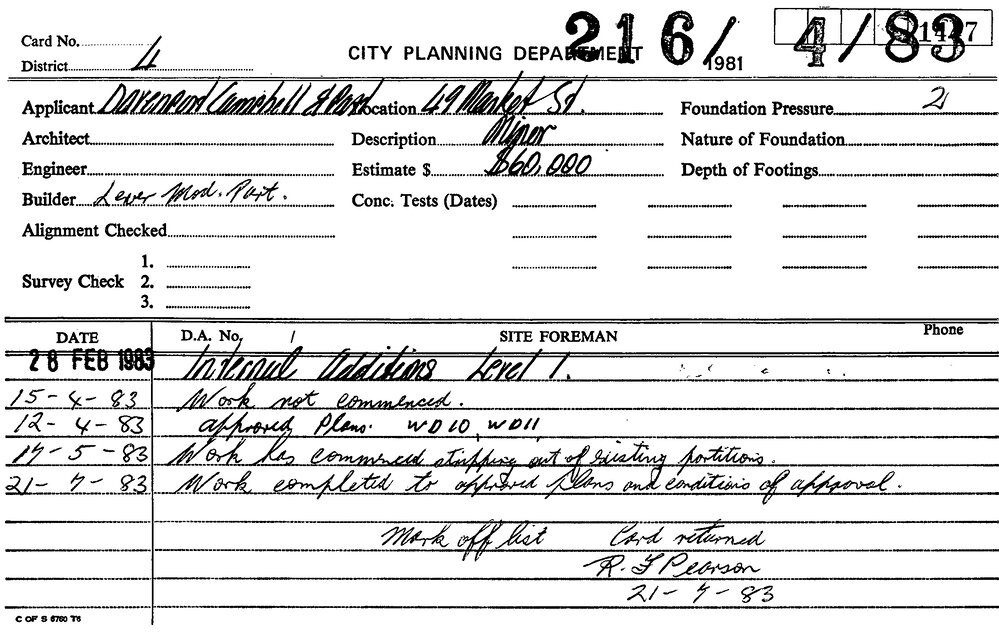 216/4/83
1427
Card No.
CITY PLANNING DEPARTMENT
1981
District 4
Applicant Davenport Campbell & Part Location 49 Market St. Foundation Pressure 2
Architect Description Minor Nature of Foundation
Engineer Estimate $ $60,000 Depth of Footings
Builder Lever Mod. Part. Conc. Tests (Dates)
Alignment Checked
1.
Survey Check 2.
3.
DATE D.A. No. / SITE FOREMAN Phone
28 FEB 1983 Internal Additions Level 1.
15-4-83 Work not commenced.
12-4-83 approved Plans. WD10, WD11
17-5-83 Work has commenced stripping out of existing partitions.
21-7-83 Work completed to approved plans and conditions of approval.
Mark off list Card returned
R. J Pearson
21-7-83
C OF S 6760 T6